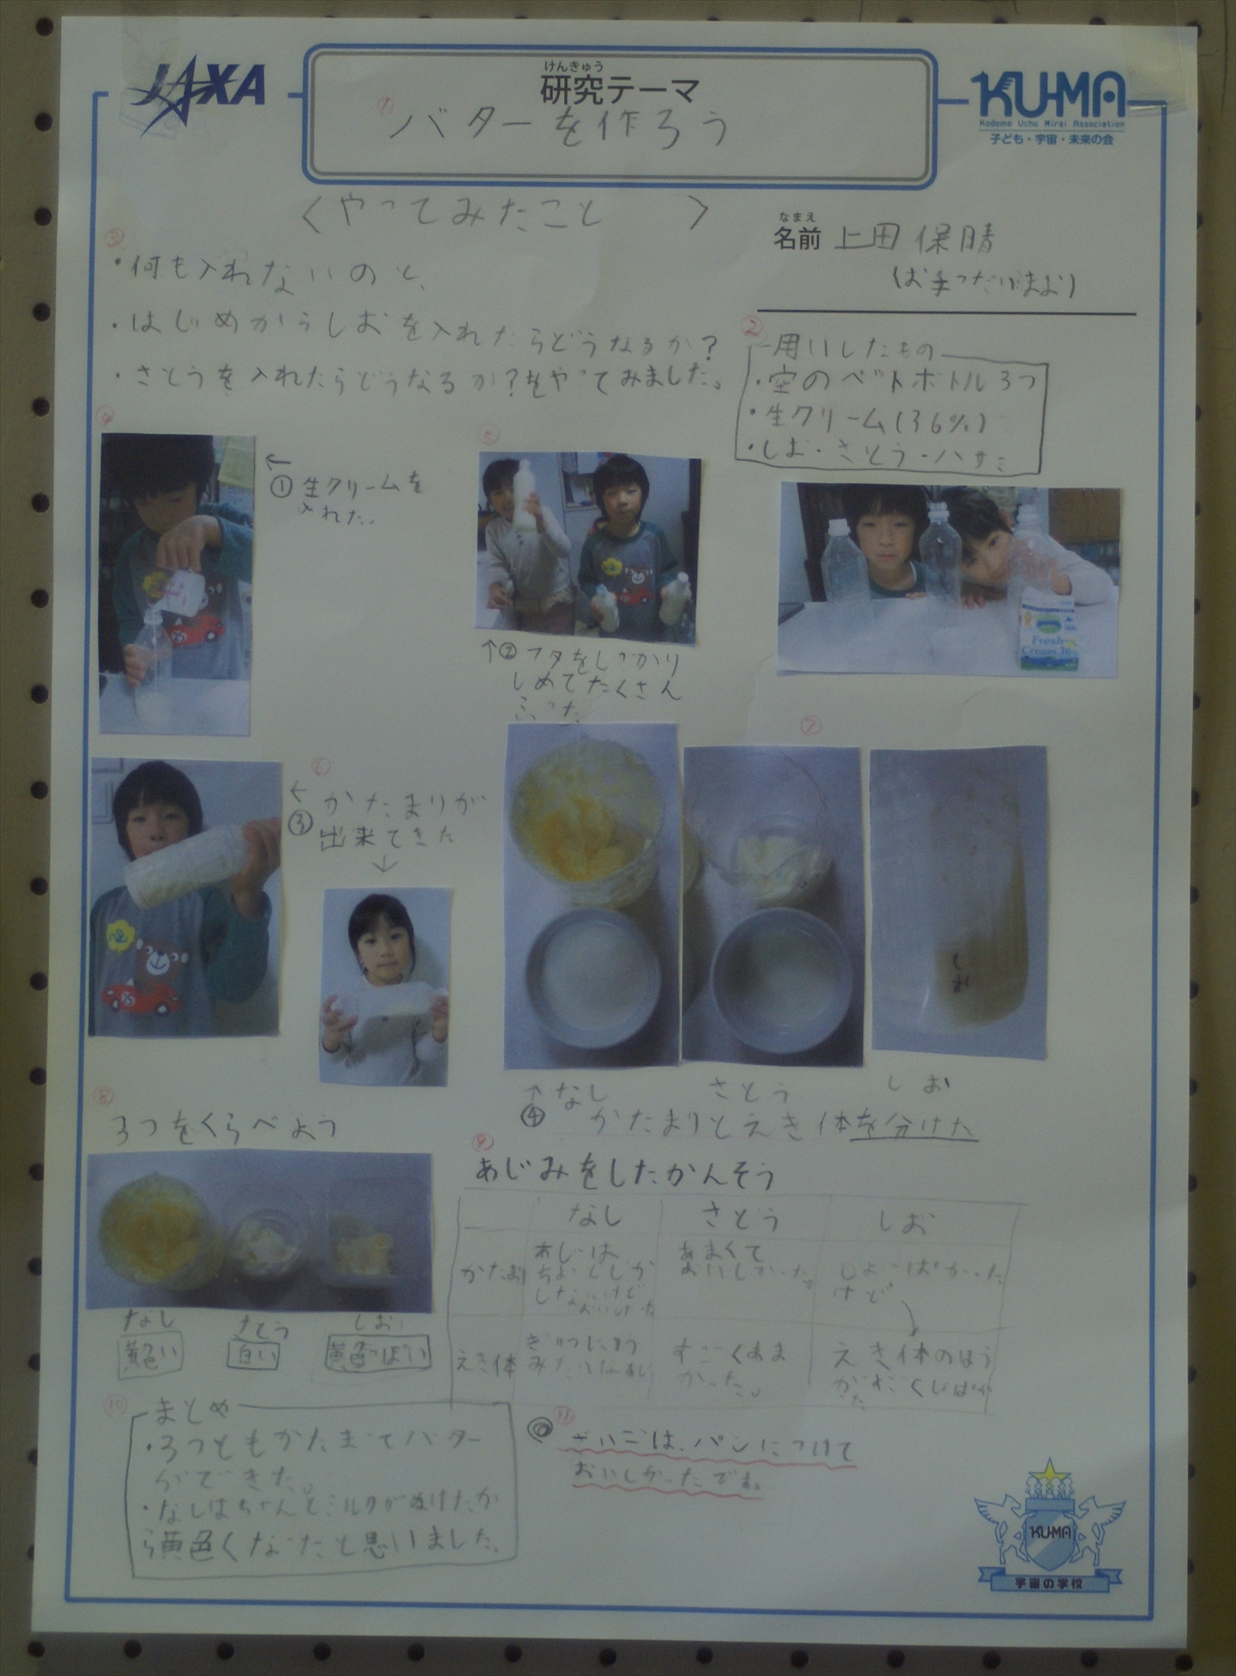 JAXA
けんきゅう
研究テーマ
① バターを作ろう
KU-MA
Kodomo Uchu Mirai Association
子ども・宇宙・未来の会
〈やってみたこと 〉
なまえ
名前 上田 保晴
(お手つだい:まお)
③
・何も入れないのと、
・はじめからしおを入れたらどうなるか?
・さとうを入れたらどうなるか?をやってみました。
②
用いしたもの
・空のペトボトル3つ
・生クリーム(36%)
・しお・さとう・ハサミ
④
←
①生クリームを
入れた。
⑤
↑②フタをしっかり
しめてたくさん
ふった
Fresh
Cream36
⑥
←
③かたまりが
出来てきた
↓
⑦
しお
↑
なし さとう しお
④ かたまりとえき体を分けた
⑧
3つをくらべよう
なし さとう しお
黄色い 白い 黄色っぽい
⑨
あじみをしたかんそう
なし さとう しお
かたまり
あじは
ちょっとしか
しないけど
あまくて
おいしかった。
しょっぱかった
けど
えき体
ぎゅうにゅう
みたいなあじ
すごくあま
かった。
えき体のほう
がすごくしょぱか
た
⑩
まとめ
・3つともかたまってバター
ができた。
・なしはちゃんとミルクがぬけたか
ら黄色くなったと思いました。
⑪
◎さいごは、パンにつけて
おいしかったです。
KU-MA
宇宙の学校